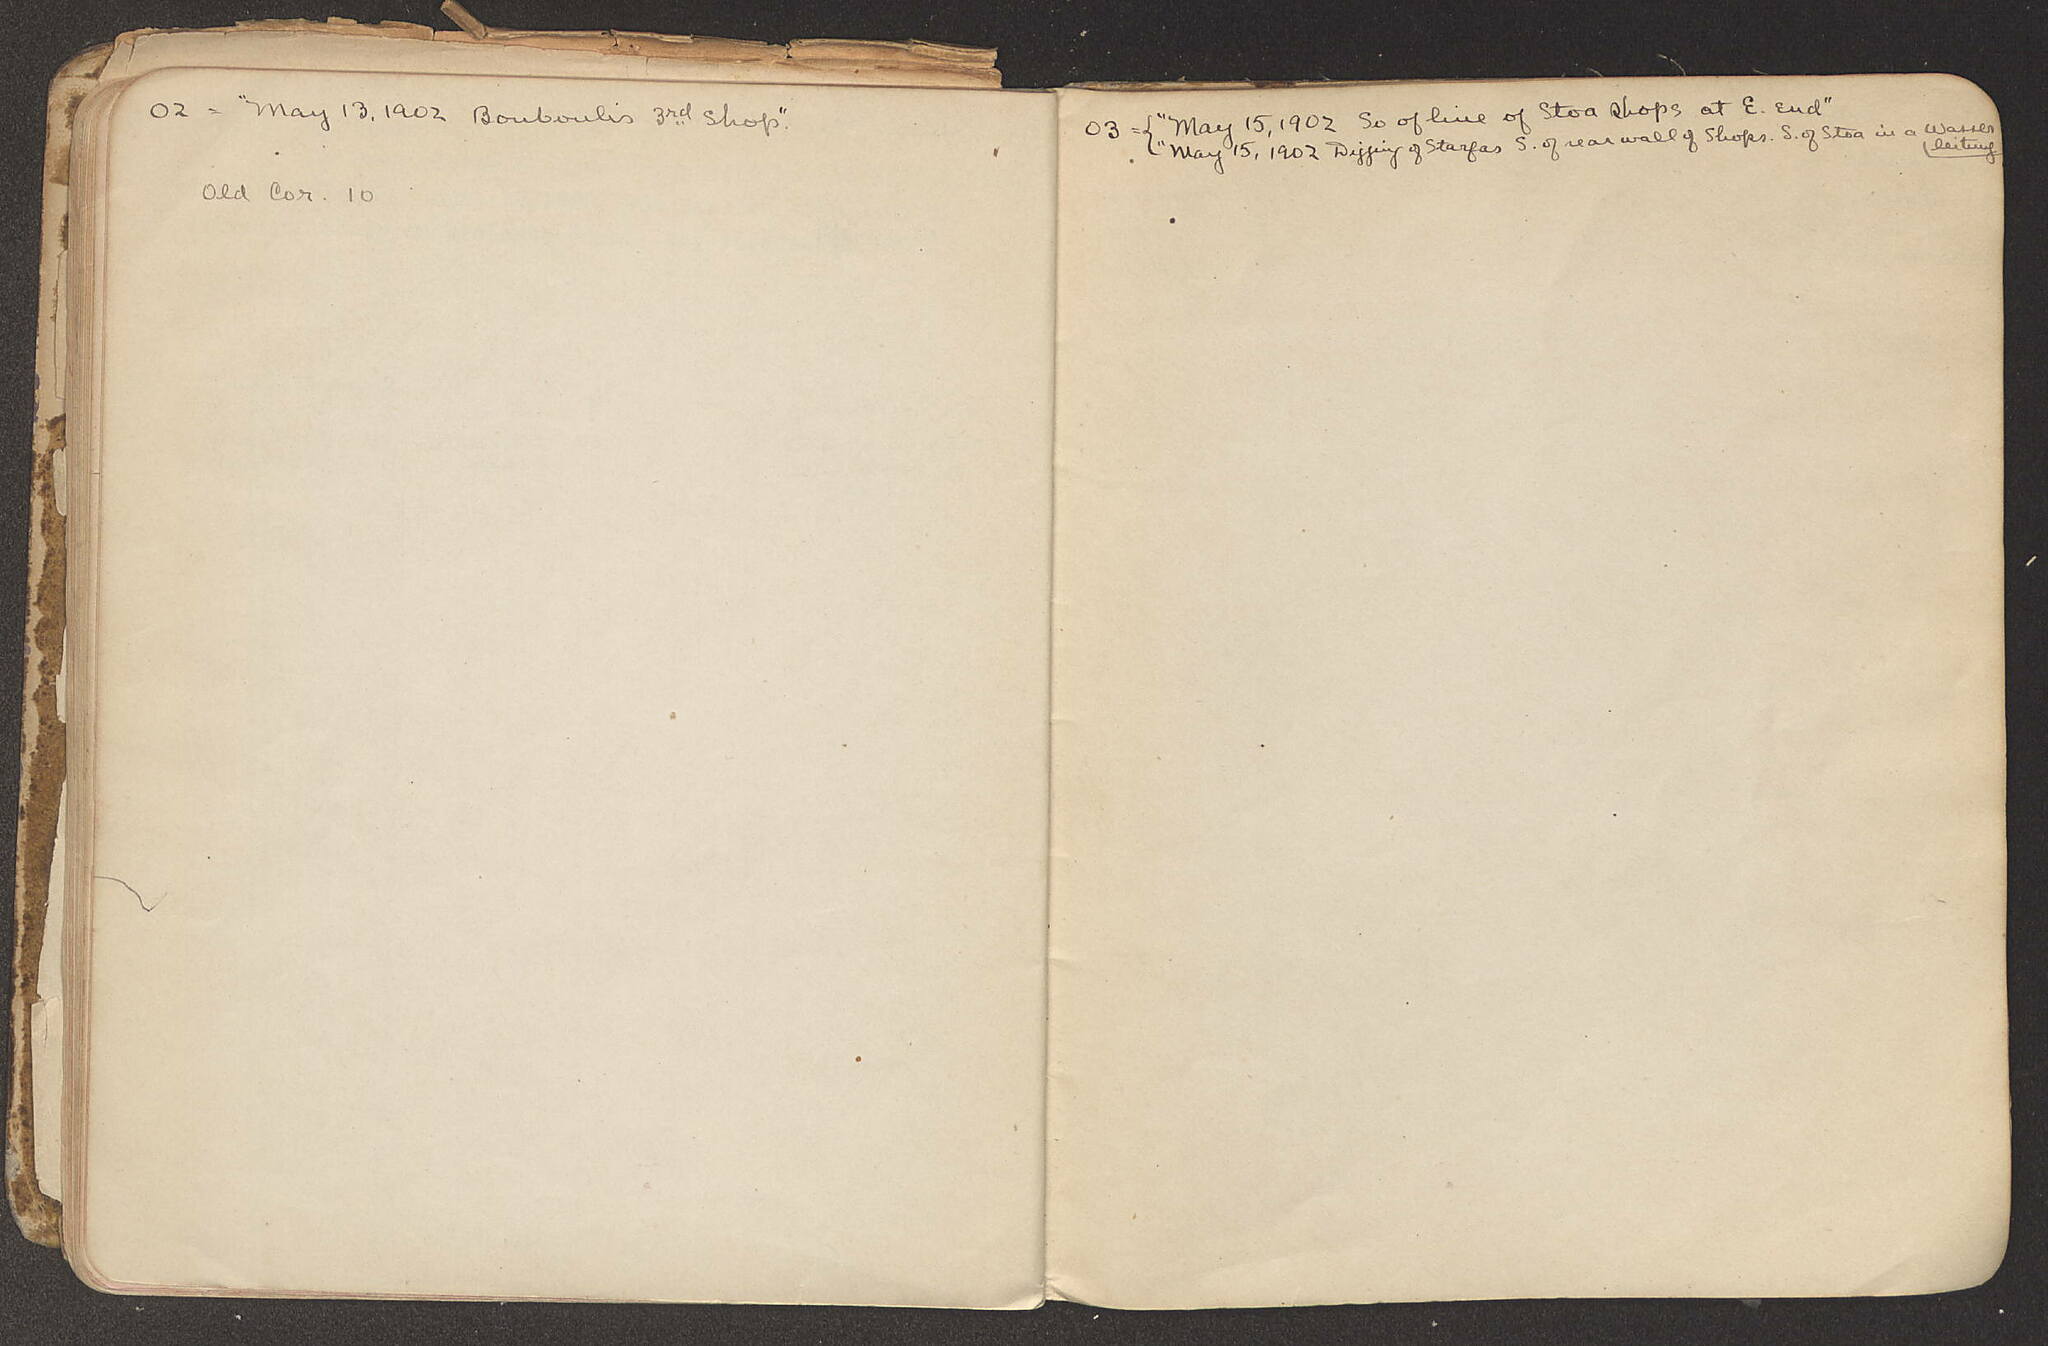 02 = "May 13, 1902 Bouboulis 3rd Shop".
Old Cor. 10
03 = { "May 15, 1902 So of line of Stoa Shops at E. End"
"May 15, 1902 Digging of Starfas S. of rear wall of Shops. S. of Stoa in a Wasser
leitung